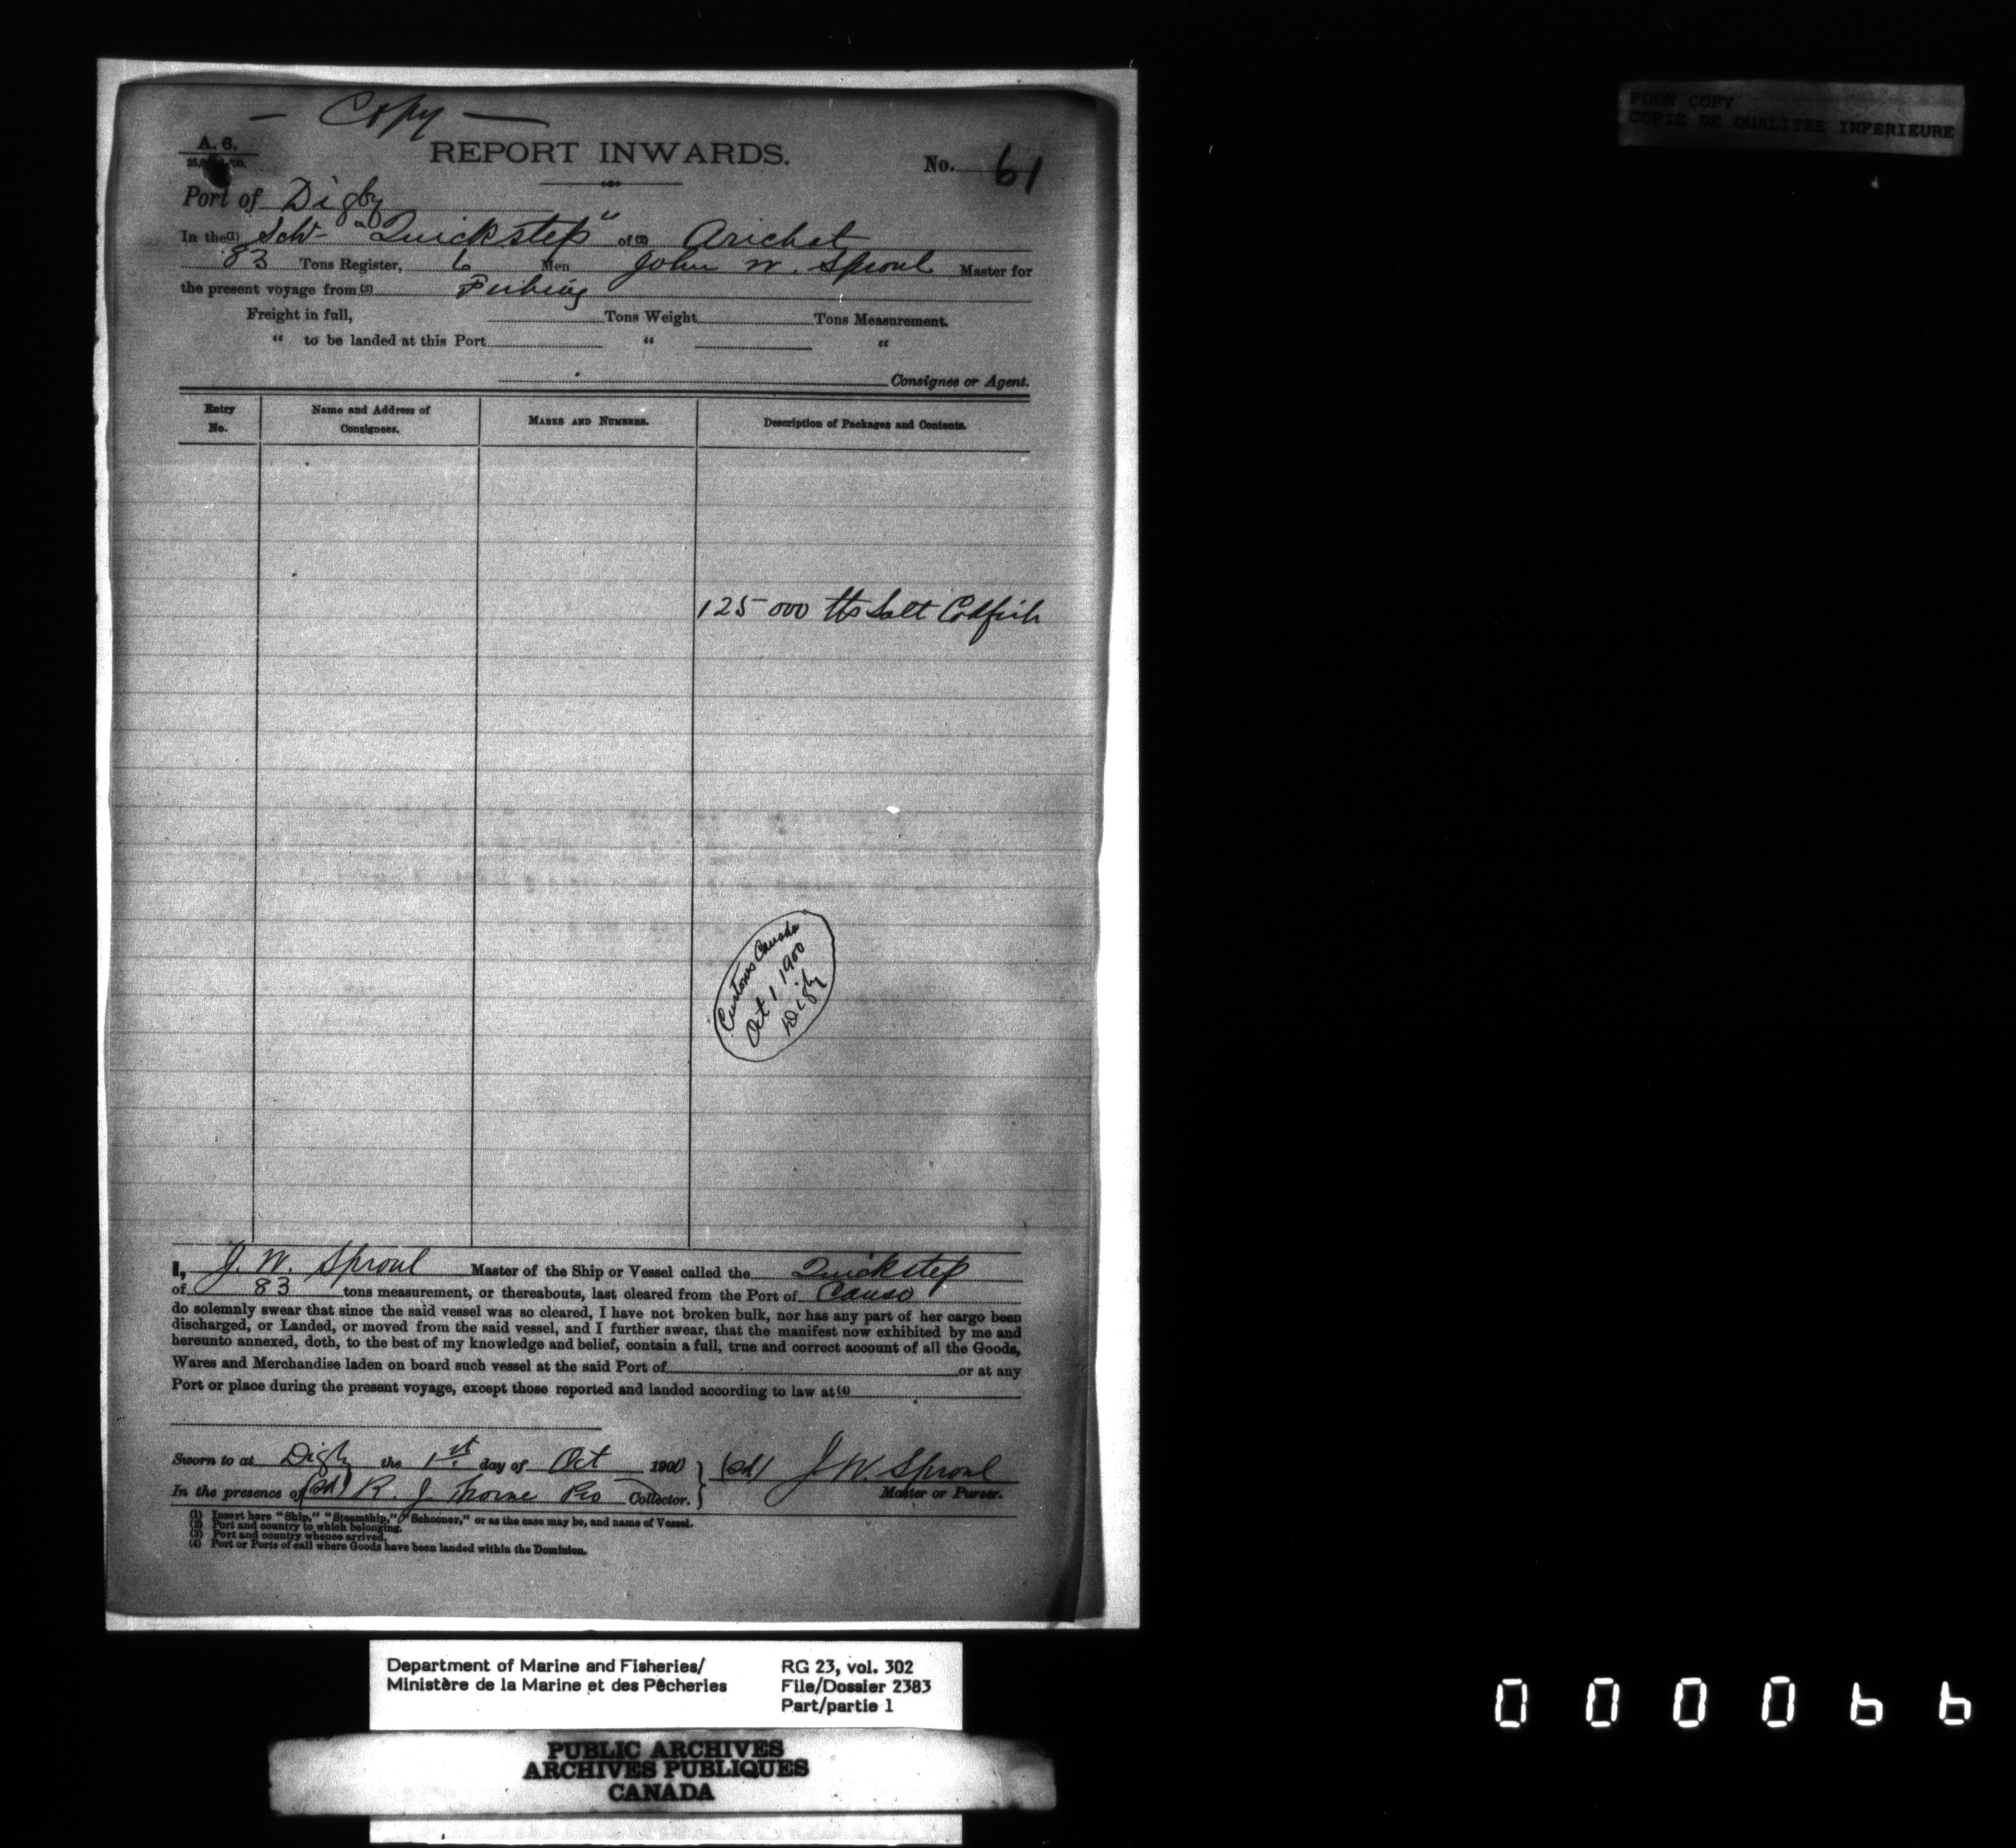 — Copy —
A. 6.
REPORT INWARDS.
No. 61
Port of Digby
In the (1) Schr "Quickstep" of (2) Arichat
83 Tons Register, 6 Men John W. Sproul Master for
the present voyage from (3) Fishing
Freight in full, Tons Weight Tons Measurement.
" to be landed at this Port " "
Consignee or Agent.
Entry No.
Name and Address of Consignees.
MARKS AND NUMBERS.
Description of Packages and Contents.
125 000 lbs Salt Codfish
Customs Canada
Oct 1 1900
Digby
I, J. W. Sproul Master of the Ship or Vessel called the Quickstep
of 83 tons measurement, or thereabouts, last cleared from the Port of Canso
do solemnly swear that since the said vessel was so cleared, I have not broken bulk, nor has any part of her cargo been
discharged, or Landed, or moved from the said vessel, and I further swear, that the manifest now exhibited by me and
hereunto annexed, doth, to the best of my knowledge and belief, contain a full, true and correct account of all the Goods,
Wares and Merchandise laden on board such vessel at the said Port of or at any
Port or place during the present voyage, except those reported and landed according to law at (4)
Sworn to at Digby the 1st day of Oct 1900 (sd) J. W. Sproul
In the presence of (sd) R. J. Thorne Collector. Master or Purser.
(1) Insert here "Ship," "Steamship," "Schooner," or as the case may be, and name of Vessel.
(2) Port and country to which belonging.
(3) Port and country whence arrived.
(4) Port or Ports of call where Goods have been landed within the Dominion.
POOR COPY
COPIE DE QUALITEE INFERIEURE
Department of Marine and Fisheries/
Ministère de la Marine et des Pêcheries
RG 23, vol. 302
File/Dossier 2383
Part/partie 1
PUBLIC ARCHIVES
ARCHIVES PUBLIQUES
CANADA
000066